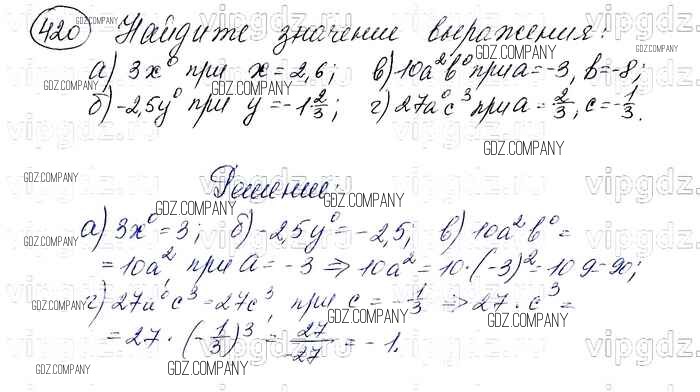 420 Найдите значение выражения:
а) 3x⁰ при x = 2,6; в) 10a²b⁰ при a = -3, b = -8;
б) -2,5y⁰ при y = -1 2/3; г) 27a⁰c³ при a = 2/3, c = -1/3.
Решение:
а) 3x⁰ = 3; б) -2,5y⁰ = -2,5; в) 10a²b⁰ =
= 10a², при a = -3 ⇒ 10a² = 10·(-3)² = 10·9 = 90;
г) 27a⁰c³ = 27c³, при c = -1/3 ⇒ 27·c³ =
= 27·(-1/3)³ = 27/-27 = -1.
GDZ.COMPANY
vipgdz